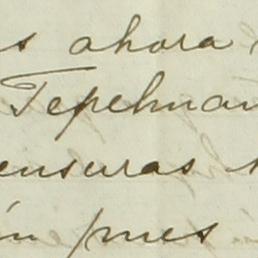 s ahora
Tepelman
ensuras
in pues